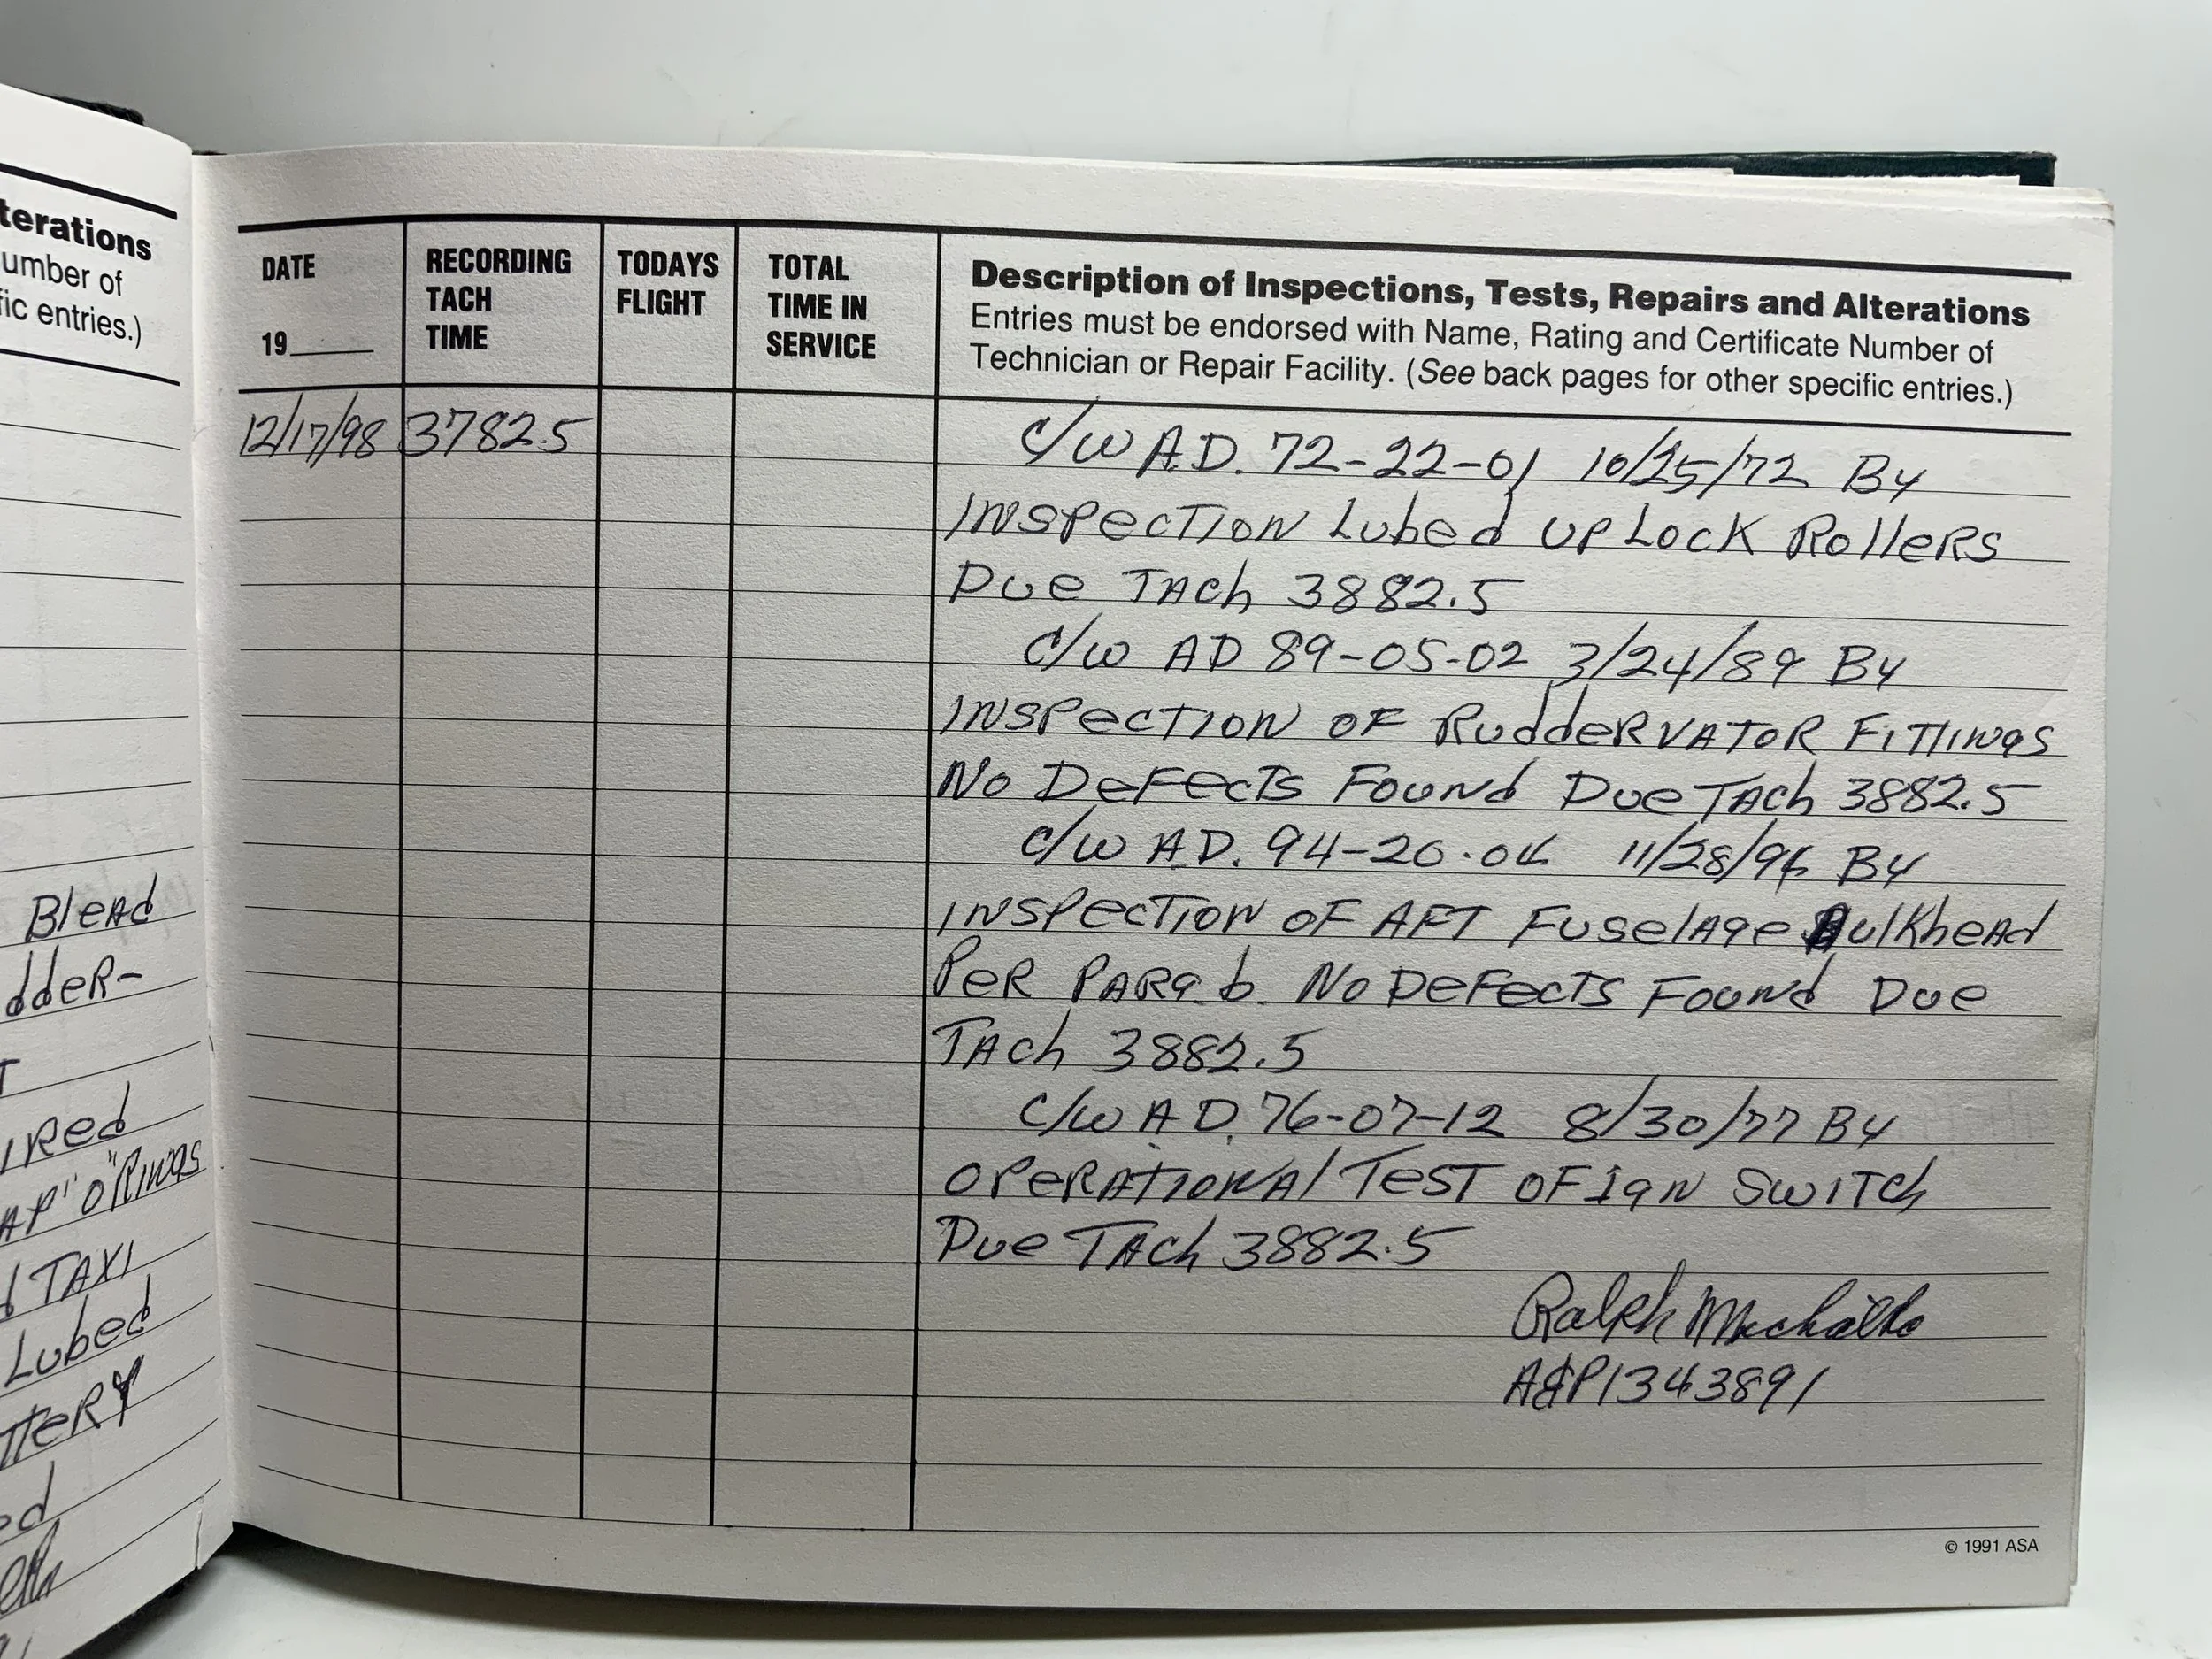 terations
umber of
fic entries.)
Blead
dder-
T
ired
AP" "O" Rings
d TAXI
Lubed
TTERY
ed
DATE
19____
RECORDING
TACH
TIME
TODAYS
FLIGHT
TOTAL
TIME IN
SERVICE
Description of Inspections, Tests, Repairs and Alterations
Entries must be endorsed with Name, Rating and Certificate Number of
Technician or Repair Facility. (See back pages for other specific entries.)
12/17/98 3782.5
C/W A.D. 72-22-01 10/25/72 By
Inspection Lubed UP Lock Rollers
Due Tach 3882.5
C/W AD 89-05-02 3/24/89 By
Inspection of Ruddervator Fittings
No Defects Found Due Tach 3882.5
C/W A.D. 94-20-04 11/28/94 By
Inspection of AFT Fuselage Bulkhead
Per Parg. b. No Defects Found Due
Tach 3882.5
C/W A.D. 76-07-12 8/30/77 By
Operational Test of Ign Switch
Due Tach 3882.5
Ralph
A&P1343891
© 1991 ASA